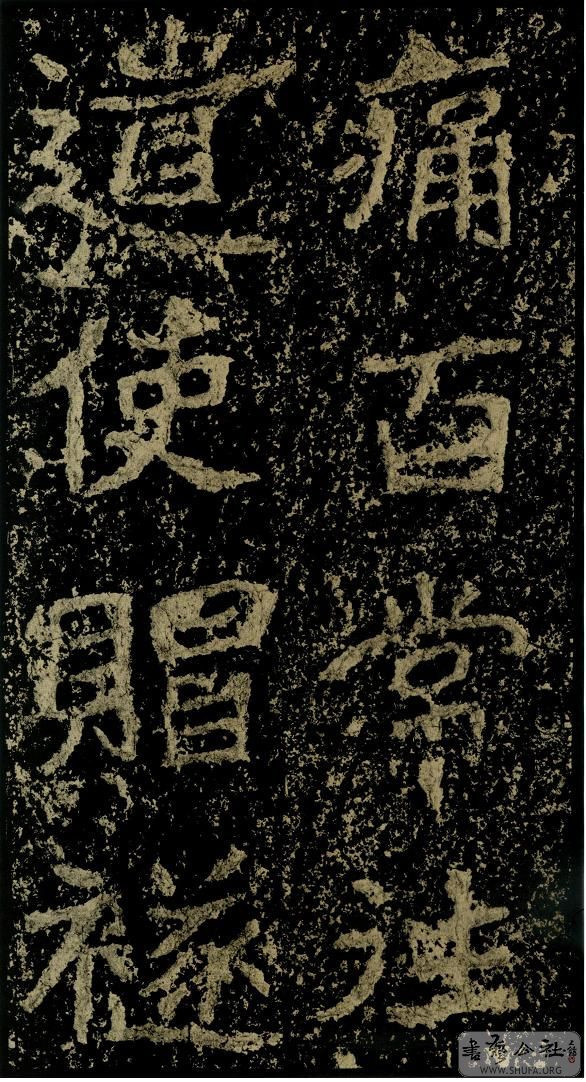 痛百常往
遣使賵襚
書法公社
WWW.SHUFA.ORG